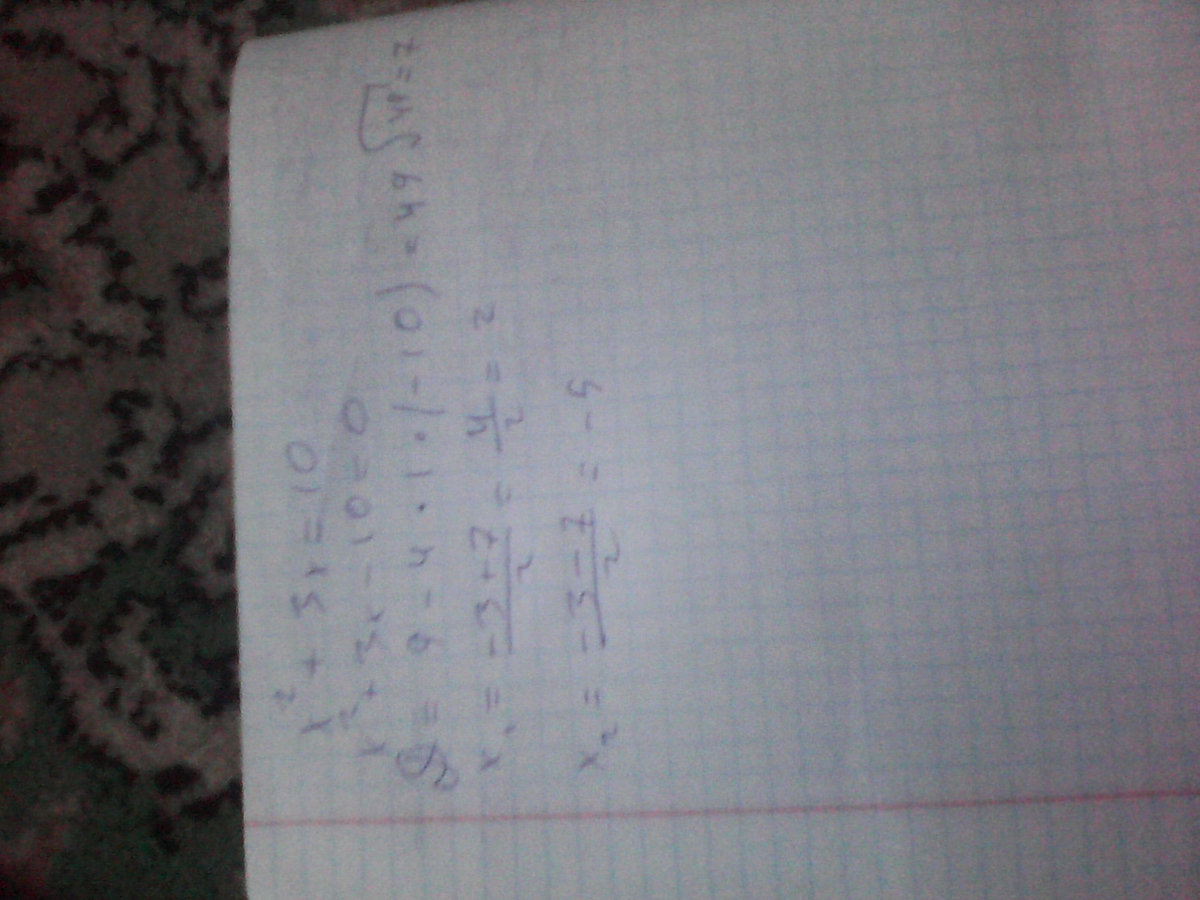 x² + 3x = 10
x² + 3x - 10 = 0
D = 9 - 4 · 1 · (-10) = 49 √49 = 7
x₁ = (-3+7)/2 = 4/2 = 2
x₂ = (-3-7)/2 = -5